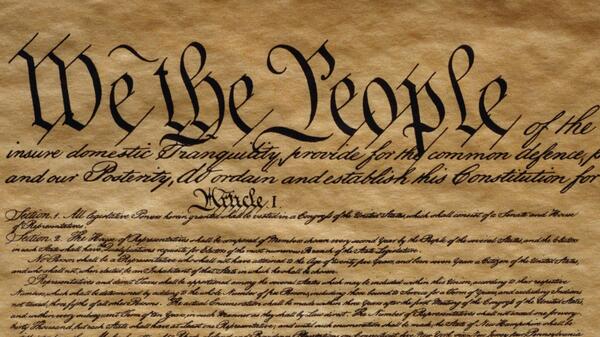 We the People of the
insure domestic Tranquility, provide for the common defence, p
and our Posterity, do ordain and establish this Constitution for
Article. I.
Section 1. All legislative Powers herein granted shall be vested in a Congress of the United States, which shall consist of a Senate and House
of Representatives.
Section 2. The House of Representatives shall be composed of Members chosen every second Year by the People of the several States, and the Electors
in each State shall have the Qualifications requisite for Electors of the most numerous Branch of the State Legislature.
No Person shall be a Representative who shall not have attained to the Age of twenty five Years, and been seven Years a Citizen of the United States,
and who shall not, when elected, be an Inhabitant of that State in which he shall be chosen.
Representatives and direct Taxes shall be apportioned among the several States which may be included within this Union, according to their respective
Numbers, which shall be determined by adding to the whole Number of free Persons, including those bound to Service for a Term of Years, and excluding Indians
not taxed, three fifths of all other Persons. The actual Enumeration shall be made within three Years after the first Meeting of the Congress of the United States,
and within every subsequent Term of ten Years, in such Manner as they shall by Law direct. The Number of Representatives shall not exceed one for every
thirty Thousand, but each State shall have at Least one Representative; and until such enumeration shall be made, the State of New Hampshire shall be